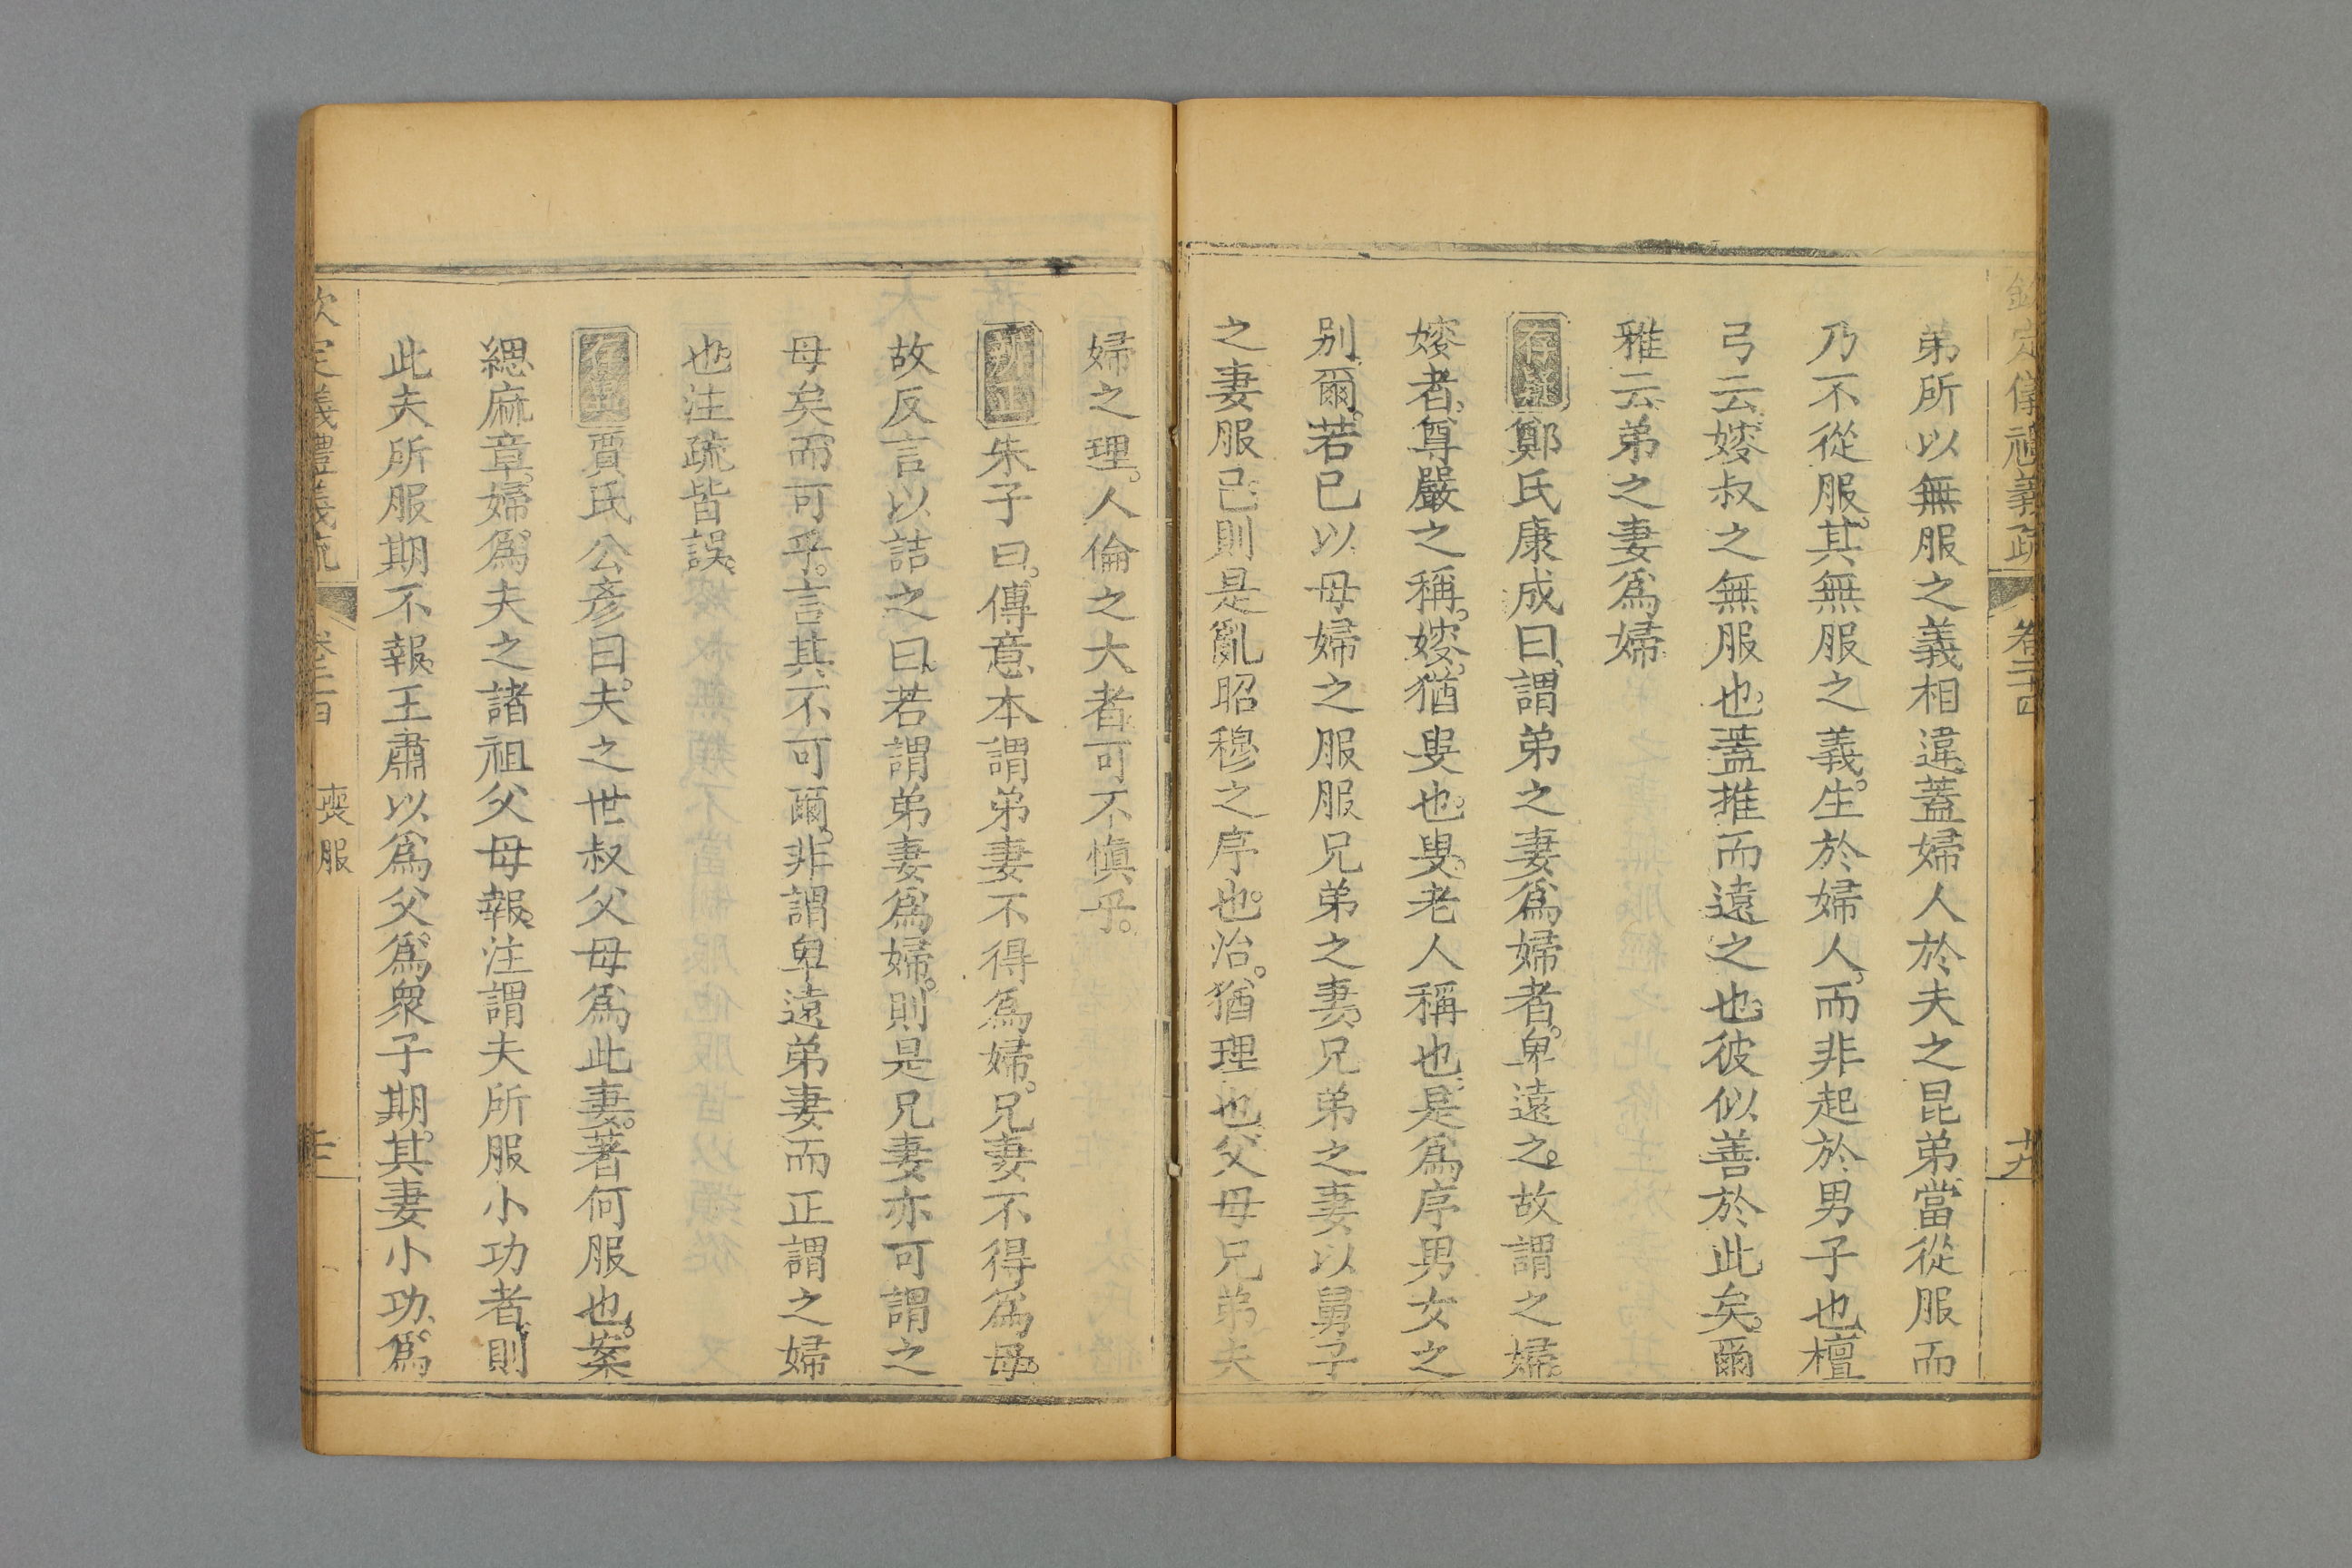 欽定儀禮義疏 卷二十四
弟所以無服之義相違蓋婦人於夫之昆弟當從服而
乃不從服其無服之義生於婦人而非起於男子也檀
弓云嫂叔之無服也蓋推而遠之也彼似善於此矣爾
雅云弟之妻爲婦
存疑鄭氏康成曰謂弟之妻爲婦者卑遠之故謂之婦
嫂者尊嚴之稱嫂猶叟也叟老人稱也是爲序男女之
別爾若己以母婦之服服兄弟之妻兄弟之妻以舅子
之妻服己則是亂昭穆之序也治猶理也父母兄弟夫
婦之理人倫之大者可不愼乎
辨正朱子曰傳意本謂弟妻不得爲婦兄妻不得爲母
故反言以詰之曰若謂弟妻爲婦則是兄妻亦可謂之
母矣而可乎言其不可爾非謂卑遠弟妻而正謂之婦
也注疏皆誤
存異賈氏公彥曰夫之世叔父母爲此妻著何服也案
緦麻章婦爲夫之諸祖父母報注謂夫所服小功者則
此夫所服期不報王肅以爲父爲衆子期其妻小功爲
欽定儀禮義疏 喪服